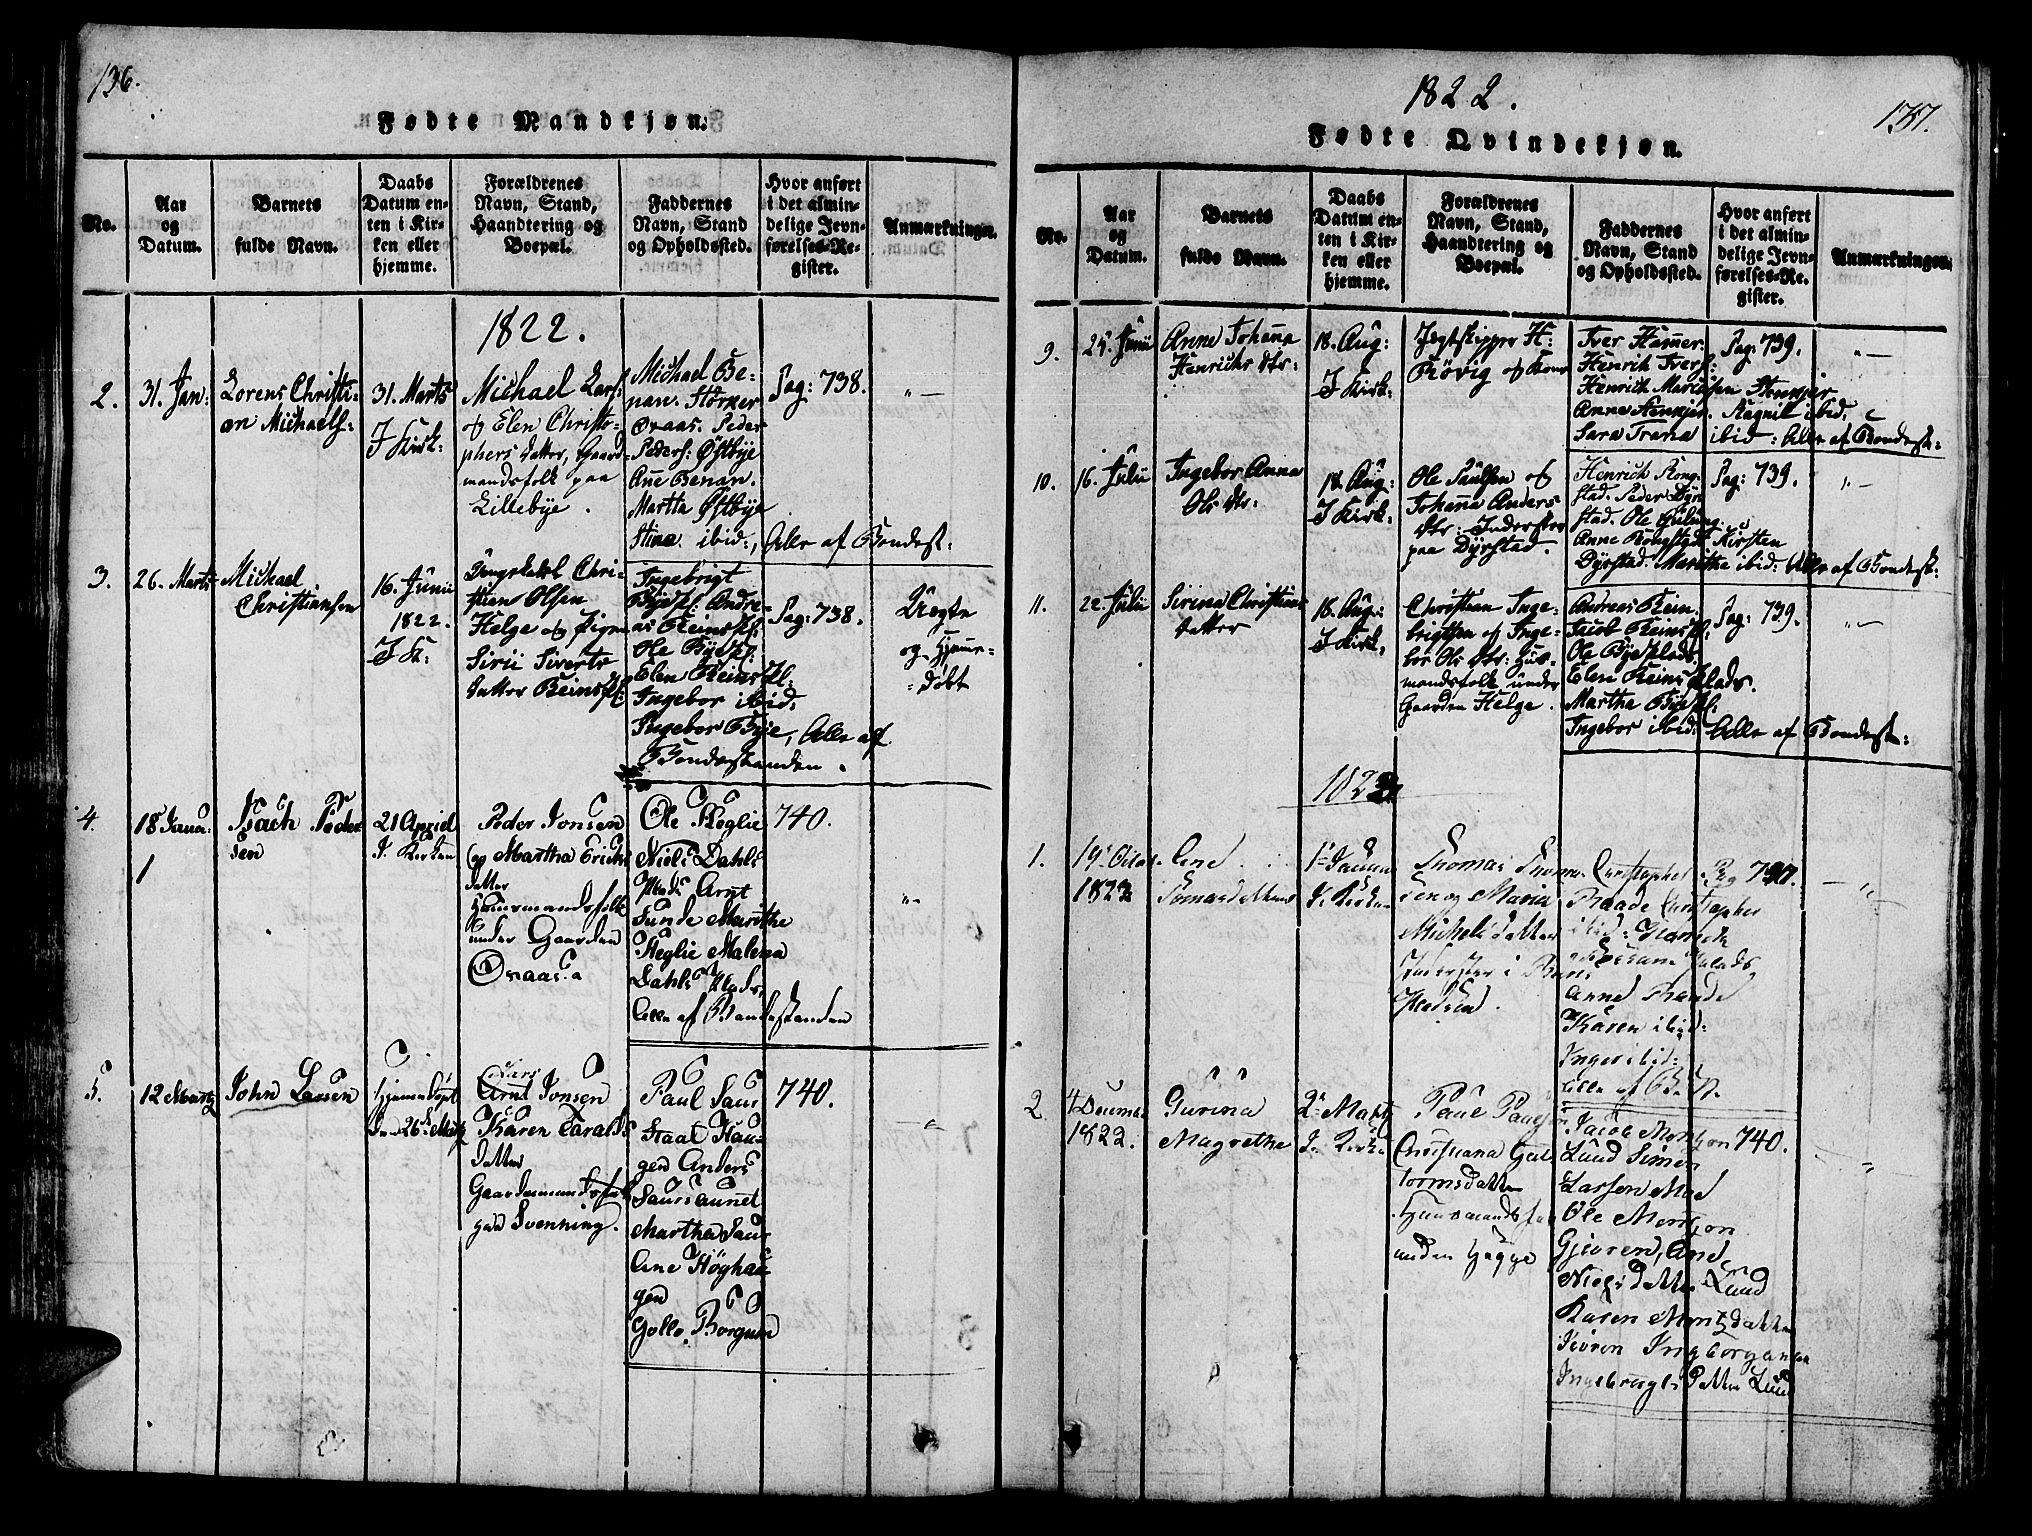 136.
Fødte Mandkjøn.
No.
Aar
og
Datum.
Barnets
fulde Navn.
Daabs
Datum en-
ten i Kir-
ken eller
hjemme.
Forældrenes
Navn, Stand,
Haandtering og
Boepæl.
Faddernes
Navn, Stand
og Opholdssted.
Hvor anført
i det almin-
delige Jevn-
førelses-Re-
gister.
Anmærkninger.
1822.
2.
31. Jan:
Lorens Christi-
an Michaels:
31. Marts
I Kirk:
Michael Lars:
og Elen Christo-
phers datter, Gaard-
mandsfolk paa
Lillebye.
Michael Be-
nan. Störker
Oraas. Peder
Peders: Østbye
Ane Benan.
Martha Østbye
Stina ibid:, Alle af Bondest:
Pag: 738.
"—
3.
26. Marts
Michael
Christiansen
16. Junii
1822.
I K:
Ungekarl Chri-
stian Olsen
Helge og Pigen
Sirii Siverts
datter Reinskl:
Ingebrigt
Byeskl: Andre-
as Reinskl:
Ole Byeskl:
Elen Reinskl:
Ingebor ibid:
Ingebor Bye, Alle af
Bondestanden.
Pag: 738.
Uægte
og Hjemme-
døbt
4.
18 Janua:
1
Isach Peder
sen
21 Apriel
I Kirken
Peder Jonsen
og Martha Erichs
datter
Huusmandsfolk
under Gaarden
Oraas
Ole Heglie
Niels Dahls
Plads Arnt
Sunde Marithe
Heglie Malena
Dahls Plads,
Alle af Bondestanden
740.
"-
5.
12 Martz
John Larsen
Hjemmedöpt
den 26 Martz
Lars
Arnt Jonsen
Karen Taralds
datter
Gaardemandsfolk
paa Svenning.
Paul Saur
Staal Hau-
gen Anders
Saursaunet
Martha Saur
Ane Höghau
gen
Gollo. Borgum
740.
1822.
137.
Fødte Qvindekjøn.
No.
Aar
og
Datum.
Barnets
fulde Navn.
Daabs
Datum en-
ten i Kir-
ken eller
hjemme.
Forældrenes
Navn, Stand,
Haandtering og
Boepæl.
Faddernes
Navn, Stand
og Opholdssted.
Hvor anført
i det almin-
delige Jevn-
førelses-Re-
gister.
Anmærkninger.
9.
25. Junii
Anne Johanna
Henrichs dtr:
18. Aug:
I Kirk:
Jegtskipper H:
Røvig og Kone
Iver Hemmer.
Henrik Ivers:
Henrich Mariesen Stenkjer
Anne Stenkjer. Ragnil ibid,
Sara Trana ibid: Alle af Bondest:
Pag: 739.
"—
10.
16. Julii
Ingebor Anna
Ols dtr:
18. Aug:
I Kirk:
Ole Paulsen og
Johanna Anders
dtr: Inderster
paa Dyrstad.
Henrich Rong-
stad. Peder Dyr
stad. Ole Gulung:
Anne Rongstad. Kirsten
Dyrstad. Marithe ibid: Alle af Bondest:
Pag: 739.
"—
11.
22. Julii
Sirina Christians
datter
18. Aug:
I Kirk:
Christian Inge-
brigtsen og Inge-
bor Ols dtr: Huus-
mandsfolk under
Gaarden Helge.
Andreas Rein.
Jacob Reinskl:
Ole Byesklads
Elen Reinsklads.
Martha Byeskl:
Ingebor ibid: Alle af Bondest:
Pag: 739.
"—
1822
1.
19 Octob.
1822
Ane
Tomasdatter
1 Januar
I Kirken
Thomas Thoma-
sen og Maria
Michelsdatter
Inderster i Reins
Pladsen.
Christopher
Raade Christopher
ibid: Henrich
Plads
Anne Raade
Karen ibid:
Inger ibid:
Alle af B: St.
Pag 737.
— "
2
4 Decemb.
1822.
Gurina
Magrethe
2 Martz
I Kirke
Paul Paulsen
Christiana Gut
tormsdatter
Huusmandsfolk
under Hegge
Jacob Mortzon
Lund Simon
Larsen Moe
Ole Mortzon
Gjevren, Ane
Nielsdatter Lund
Karen Mortzdatter
Jevren Ingborg
Ingebregts datter Lund
740.
"